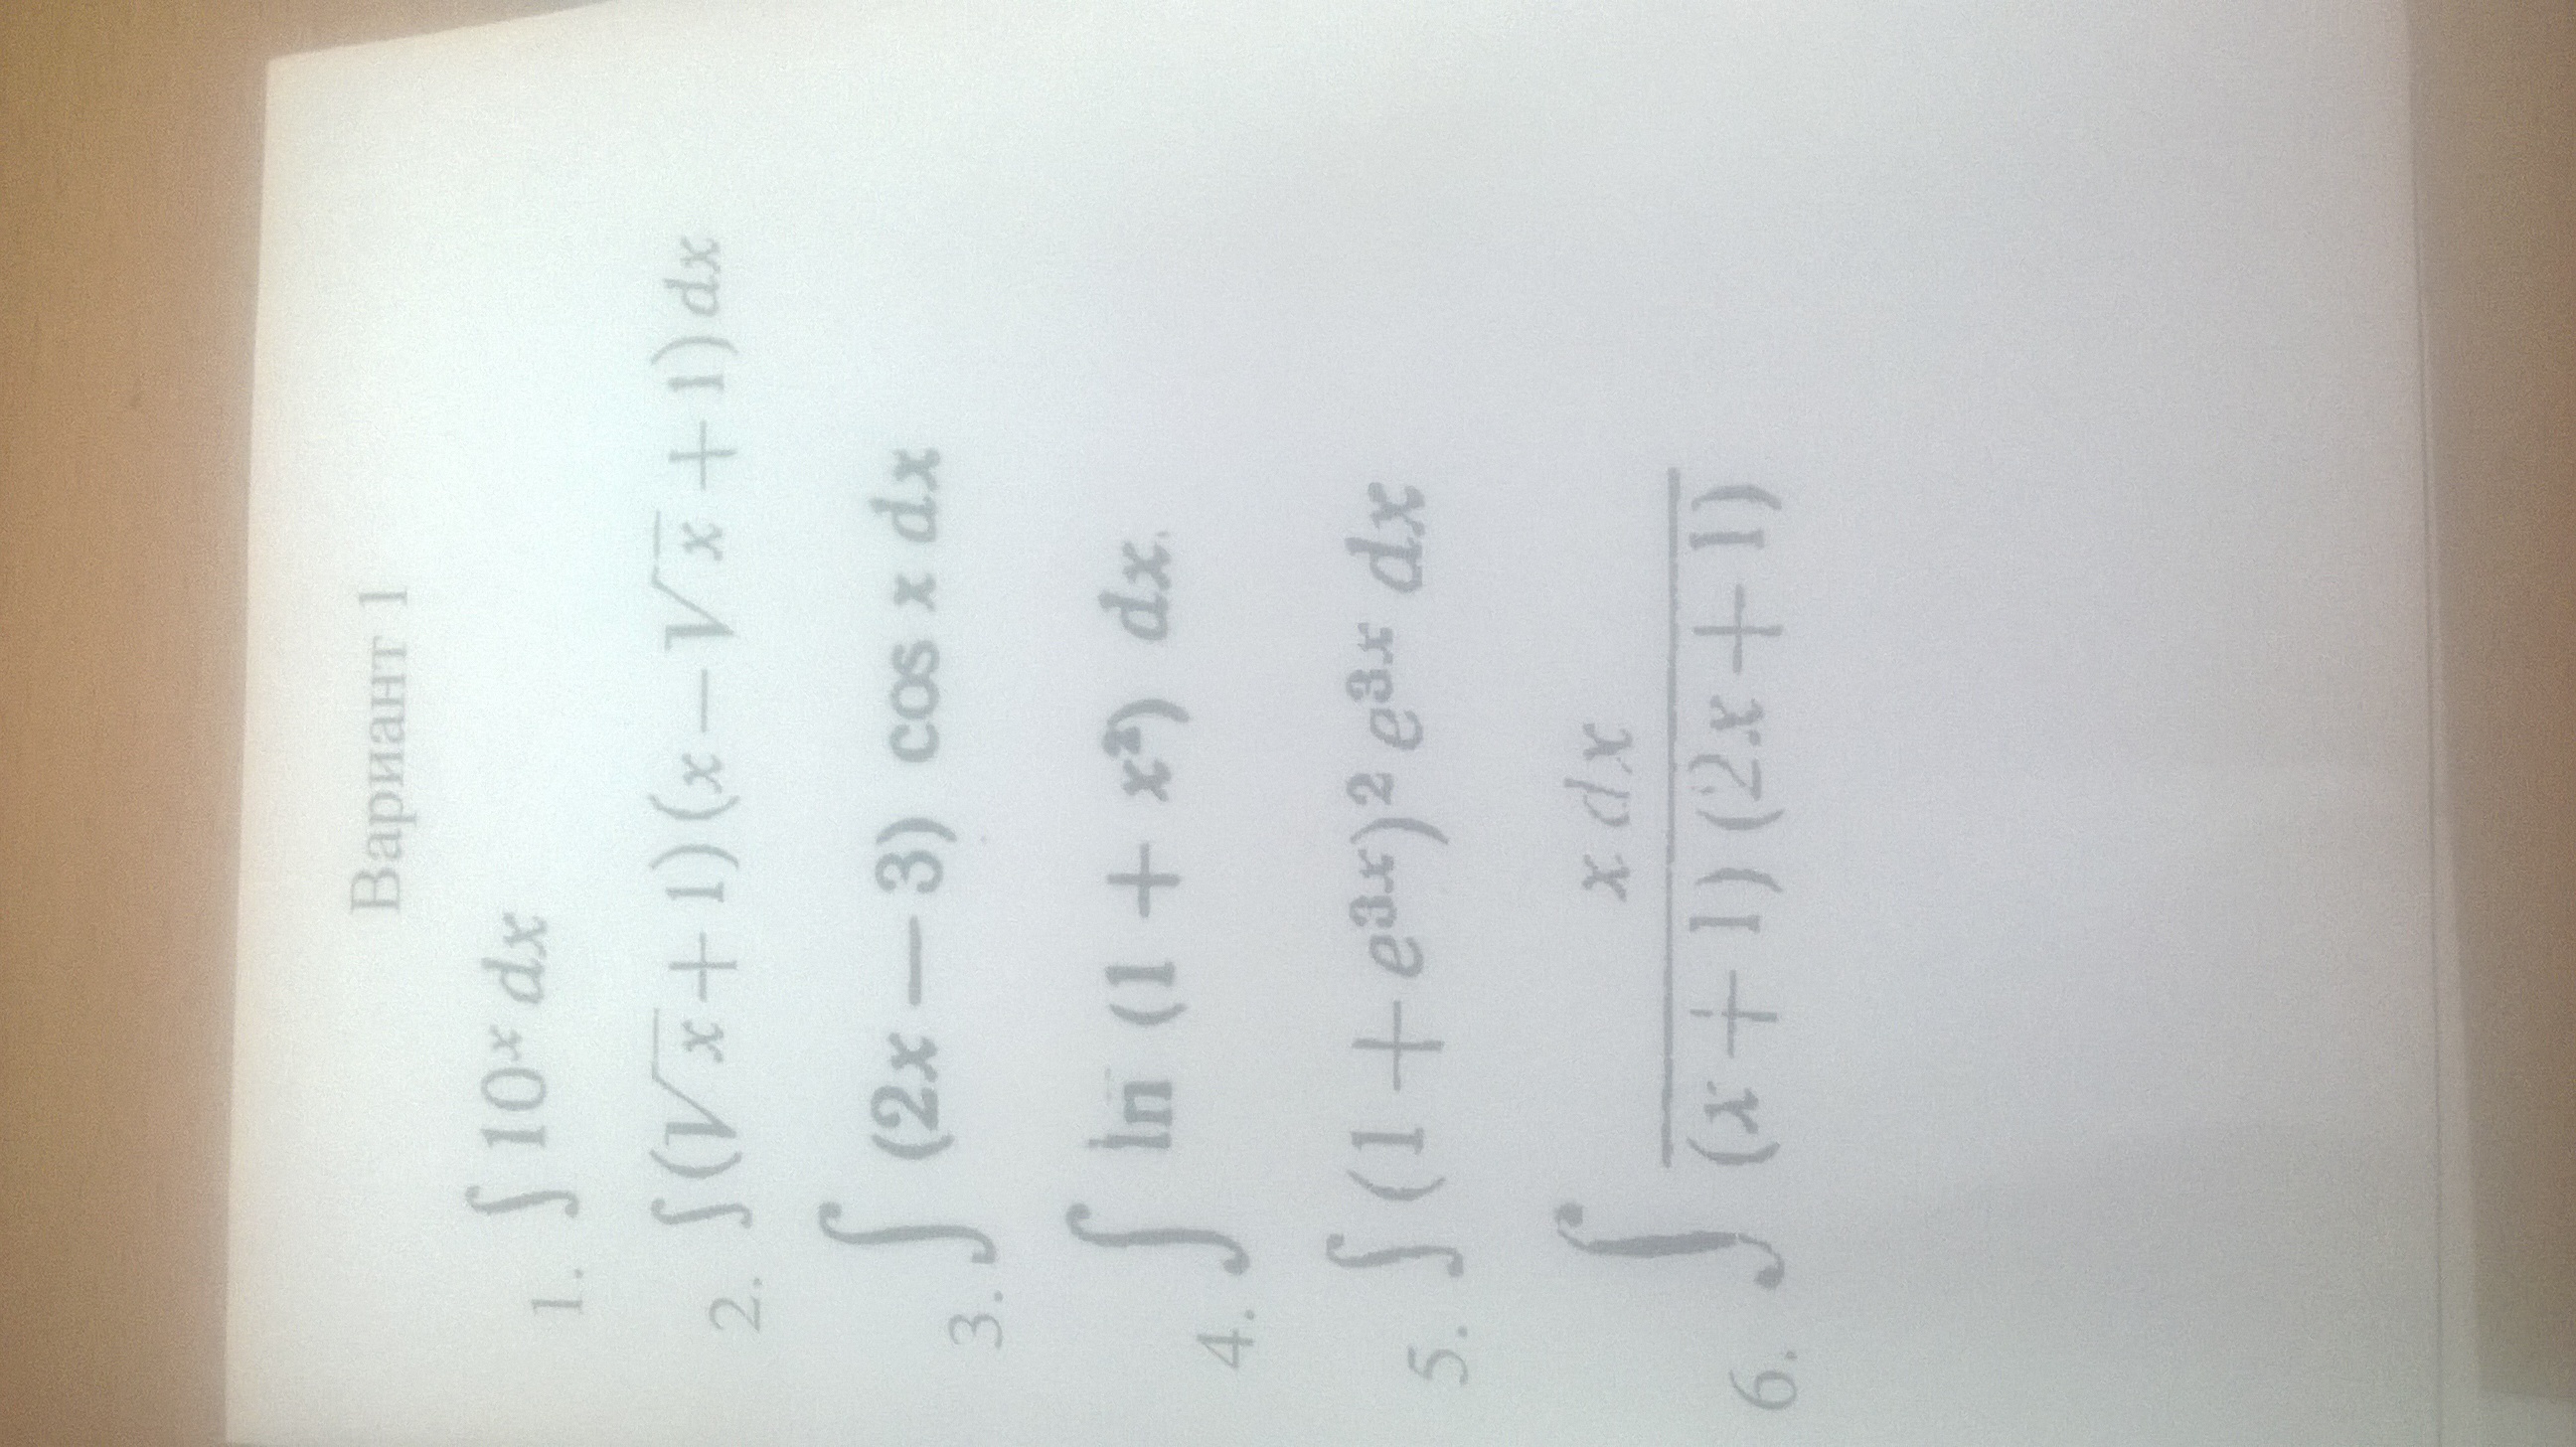 Вариант 1
1. ∫ 10ˣ dx
2. ∫ (√x + 1) (x − √x + 1) dx
3. ∫ (2x − 3) cos x dx
4. ∫ ln (1 + x²) dx.
5. ∫ (1 + e³ˣ)² e³ˣ dx
6. ∫ x dx / (x + 1) (2x + 1)